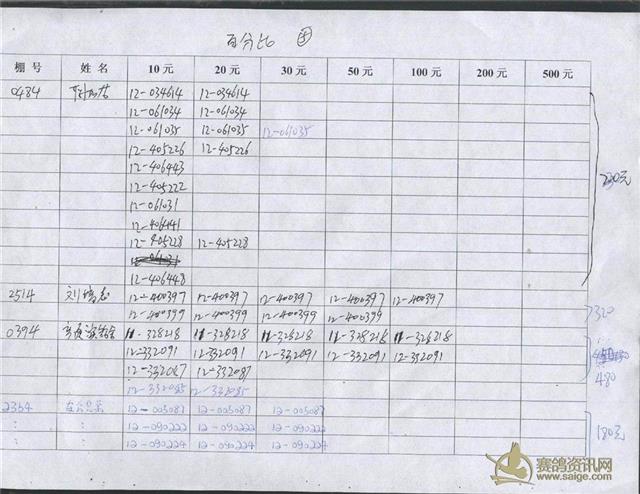 百分比
棚号 姓名 10元 20元 30元 50元 100元 200元 500元
0484 12-034614 12-034614
12-061034 12-061034
12-061035 12-061035 12-061035
12-405226 12-405226
12-406443
12-405222
12-061031
12-406441
12-405228 12-405228
12-406448
230元
2514 12-400397 12-400397 12-400397 12-400397 12-400397
12-400399 12-400399 12-400399 12-400399
320
0394 11-328218 11-328218 11-328218 11-328218 11-328218
12-332091 12-332091 12-332091 12-332091 12-332091
12-332087 12-332087
12-332085 12-332085
480
2354 12-005087 12-005087 12-005087
: : 12-090222 12-090222 12-090222
: : 12-090224 12-090224 12-090224
180元
赛鸽资讯网
www.saige.com